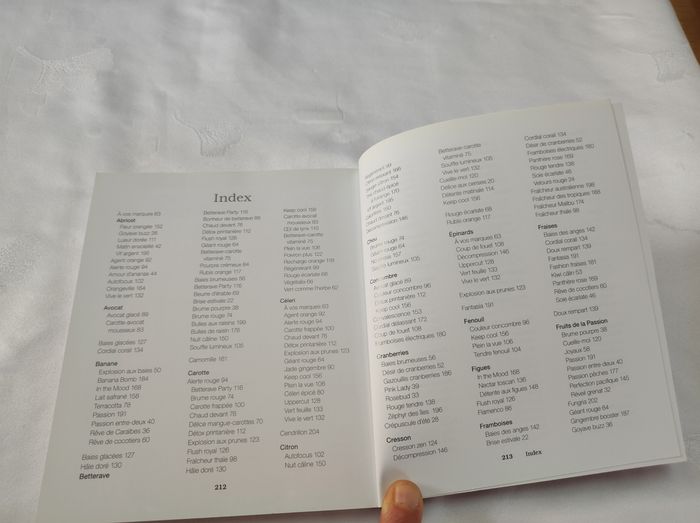 Index
À vos marques 63
Abricot
Fleur orangée 192
Goyave buzz 36
Lueur dorée 111
Matin ensoleillé 42
Vif argent 195
Agent orange 92
Alerte rouge 94
Amour d'ananas 44
Autofocus 102
Orangeville 164
Vive le vert 132
Avocat
Avocat glacé 89
Carotte avocat
mousseux 83
Baies glacées 127
Cordial corail 134
Banane
Explosion aux baies 50
Banana Bomb 184
In the Mood 168
Lait safrané 158
Terracotta 78
Passion 191
Passion entre-deux 40
Rêve de Caraïbes 36
Rêve de cocotiers 60
Baies glacées 127
Hâle doré 130
Betterave
Betterave Party 116
Bonheur de betterave 86
Chaud devant 76
Détox printanière 112
Flush royal 126
Géant rouge 64
Betterave-carotte
vitaminé 75
Pourpres crémeux 84
Rubis orange 117
Baies brumeuses 56
Betterave Party 116
Beurre d'érable 69
Brise estivale 22
Brume pourpre 38
Brume rouge 74
Bulles aux raisins 199
Bulles de raisin 176
Nuit câline 150
Souffle lumineux 105
Camomille 161
Carotte
Alerte rouge 94
Betterave Party 116
Brume rouge 74
Carotte frappée 100
Chaud devant 76
Délice mangue-carottes 70
Détox printanière 112
Explosion aux prunes 123
Flush royal 126
Fraîcheur thaïe 98
Hâle doré 130
Keep cool 156
Carotte avocat
mousseux 83
Œil de lynx 110
Betterave-carotte
vitaminé 75
Plein la vue 106
Poivron plus 122
Recharge orange 119
Régénérant 99
Rouge écarlate 68
Végétalia 66
Vert comme l'herbe 62
Céleri
À vos marques 63
Agent orange 92
Alerte rouge 94
Carotte frappée 100
Chaud devant 76
Détox printanière 112
Explosion aux prunes 123
Géant rouge 64
Jade gingembre 90
Keep cool 156
Plein la vue 106
Céleri épicé 80
Uppercut 128
Vert feuille 133
Vive le vert 132
Cendrillon 204
Citron
Autofocus 102
Nuit câline 150
212
Régénérant 99
Chou
Brume rouge 74
Géant rouge 64
Concombre
Avocat glacé 89
Couleur concombre 96
Détox printanière 112
Keep cool 156
Convalescence 153
Cordial délassant 172
Coup de fouet 108
Framboises électriques 180
Cranberries
Baies brumeuses 56
Désir de cranberries 52
Gazouillis cranberries 186
Pink Lady 39
Rosebud 33
Rouge tendre 138
Zéphyr des îles 196
Crépuscule d'été 28
Cresson
Cresson zen 124
Décompression 146
Betterave-carotte
vitaminé 75
Souffle lumineux 105
Vive le vert 132
Cueille-moi 120
Délice aux cerises 20
Détente matinale 114
Keep cool 156
Rouge écarlate 68
Rubis orange 117
Épinards
À vos marques 63
Coup de fouet 108
Décompression 146
Uppercut 128
Vert feuille 133
Vive le vert 132
Explosion aux prunes 123
Fantasia 191
Fenouil
Couleur concombre 96
Keep cool 156
Plein la vue 106
Tendre fenouil 104
Figues
In the Mood 168
Nectar toscan 136
Détente aux figues 148
Flush royal 126
Flamenco 86
Framboises
Baies des anges 142
Brise estivale 22
Cordial corail 134
Désir de cranberries 52
Framboises électriques 180
Panthère rose 169
Rouge tendre 138
Soie écarlate 46
Velours rouge 24
Fraîcheur australienne 198
Fraîcheur des tropiques 188
Fraîcheur Malibu 174
Fraîcheur thaïe 98
Fraises
Baies des anges 142
Cordial corail 134
Doux rempart 139
Fantasia 191
Fashion fraises 181
Kiwi câlin 53
Panthère rose 169
Rêve de cocotiers 60
Soie écarlate 46
Doux rempart 139
Fruits de la Passion
Brume pourpre 38
Cueille-moi 120
Joyaux 58
Passion 191
Passion entre deux 40
Passion pêches 177
Perfection pacifique 145
Réveil grenat 32
Fungria 202
Géant rouge 64
Gingembre booster 187
Goyave buzz 36
213 Index